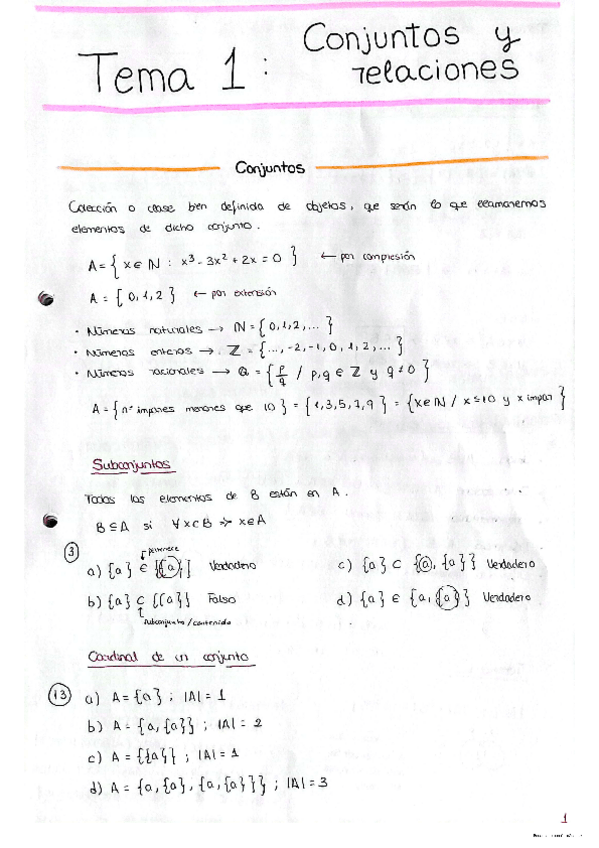 Tema 1: Conjuntos y relaciones
Conjuntos
Colección o clase bien definida de objetos, que serán lo que llamaremos
elementos de dicho conjunto.
A = { x ∈ ℕ : x³ - 3x² + 2x = 0 } ← por compresión
A = { 0, 1, 2 } ← por extensión
· Números naturales → ℕ = { 0, 1, 2, ... }
· Números enteros → ℤ = { ..., -2, -1, 0, 1, 2, ... }
· Números racionales → Q = { p/q / p, q ∈ ℤ y q ≠ 0 }
A = { nº impares menores que 10 } = { 1, 3, 5, 7, 9 } = { x ∈ ℕ / x ≤ 10 y x impar }
Subconjuntos
Todos los elementos de B están en A.
B ⊆ A si ∀ x ⊂ B → x ∈ A
③
pertenece
a) {a} ∈ {{a}} Verdadero
c) {a} ⊂ {a, {a}} Verdadero
b) {a} ⊂ {{a}} Falso
d) {a} ∈ {a, {a}} Verdadero
subconjunto/contenido
Cardinal de un conjunto
⑬ a) A = {a} ; |A| = 1
b) A = {a, {a}} ; |A| = 2
c) A = {{a}} ; |A| = 1
d) A = {a, {a}, {a, {a}}} ; |A| = 3
1